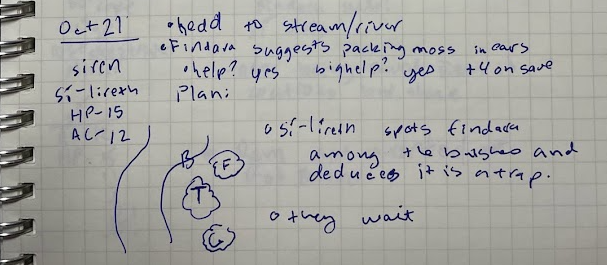 Oct 21
• head to stream/river
• Findara suggests packing moss in ears
• help? yes big help? yes +4 on save
Plan:
siren
Sí-lireth
HP-15
AC-12
o Sí-lireth spots Findara
among the bushes and
deduces it is a trap.
o they wait
B
F
T
G